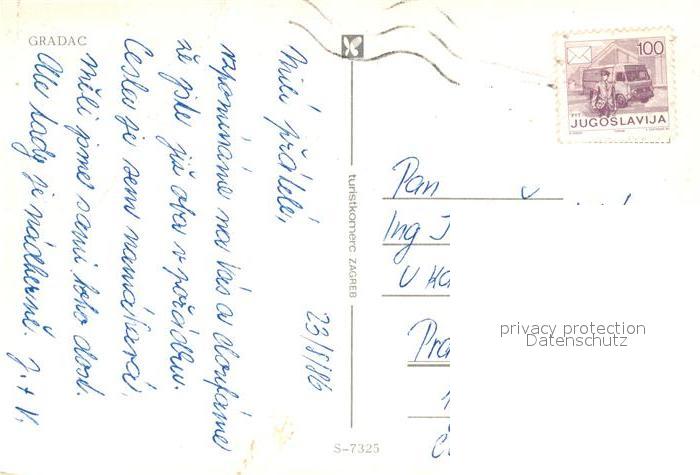 GRADAC
Milí přátelé,
vzpomínáme na Vás a doufáme
že jste již oba v pořádku.
Cesta je sem namáhavá,
měli jsme sami toho dost.
Ale tady je nádherně. J. + V.
23/8/86
turistkomerc ZAGREB
S-7325
100
PTT
JUGOSLAVIJA
Pan
Ing J
U
Pra
privacy protection
Datenschutz